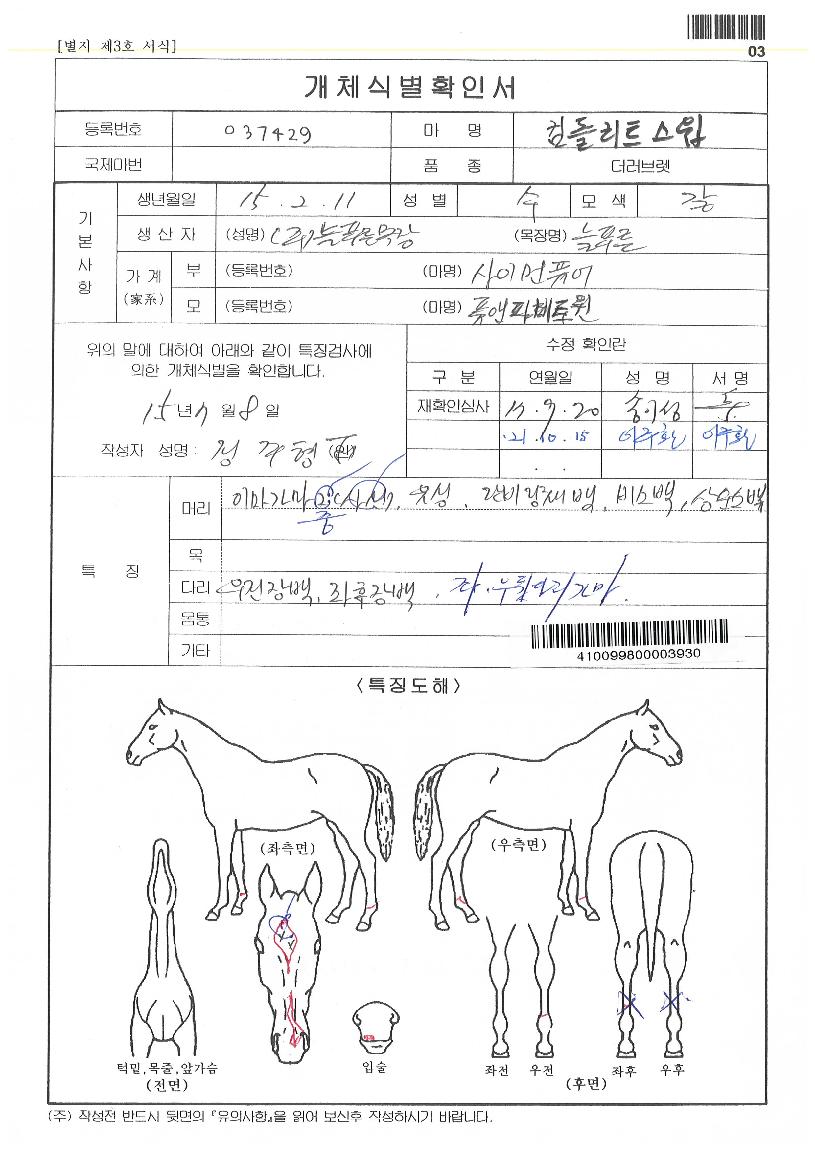 [별지 제3호 서식]
03
개체식별확인서
등록번호 037429 마 명 컴플리트스윕
국제마번 품 종 더러브렛
기본사항
생년월일 15. 2. 11 성 별 수 모 색 갈
생 산 자 (성명) (주)늘푸른목장 (목장명) 늘푸른
가 계 (家系)
부 (등록번호) (마명) 사이먼퓨어
모 (등록번호) (마명)
위의 말에 대하여 아래와 같이 특징검사에
의한 개체식별을 확인합니다.
15년 7월 8일
작성자 성명 : 정 주 형 (인)
수정 확인란
구 분 연월일 성 명 서 명
재확인심사 15. 9. 20 송이성
21. 10. 15 이주환 이주환
특 징
머리 이마가마 , 유성, 비소백,
중
목
다리 우전장백, 좌후장백.
몸통
기타
410099800003930
<특징도해>
(좌측면)
(우측면)
턱밑, 목줄, 앞가슴
(전면)
입술
좌전 우전
좌후 우후
(후면)
(주) 작성전 반드시 뒷면의 『유의사항』을 읽어 보신후 작성하시기 바랍니다.